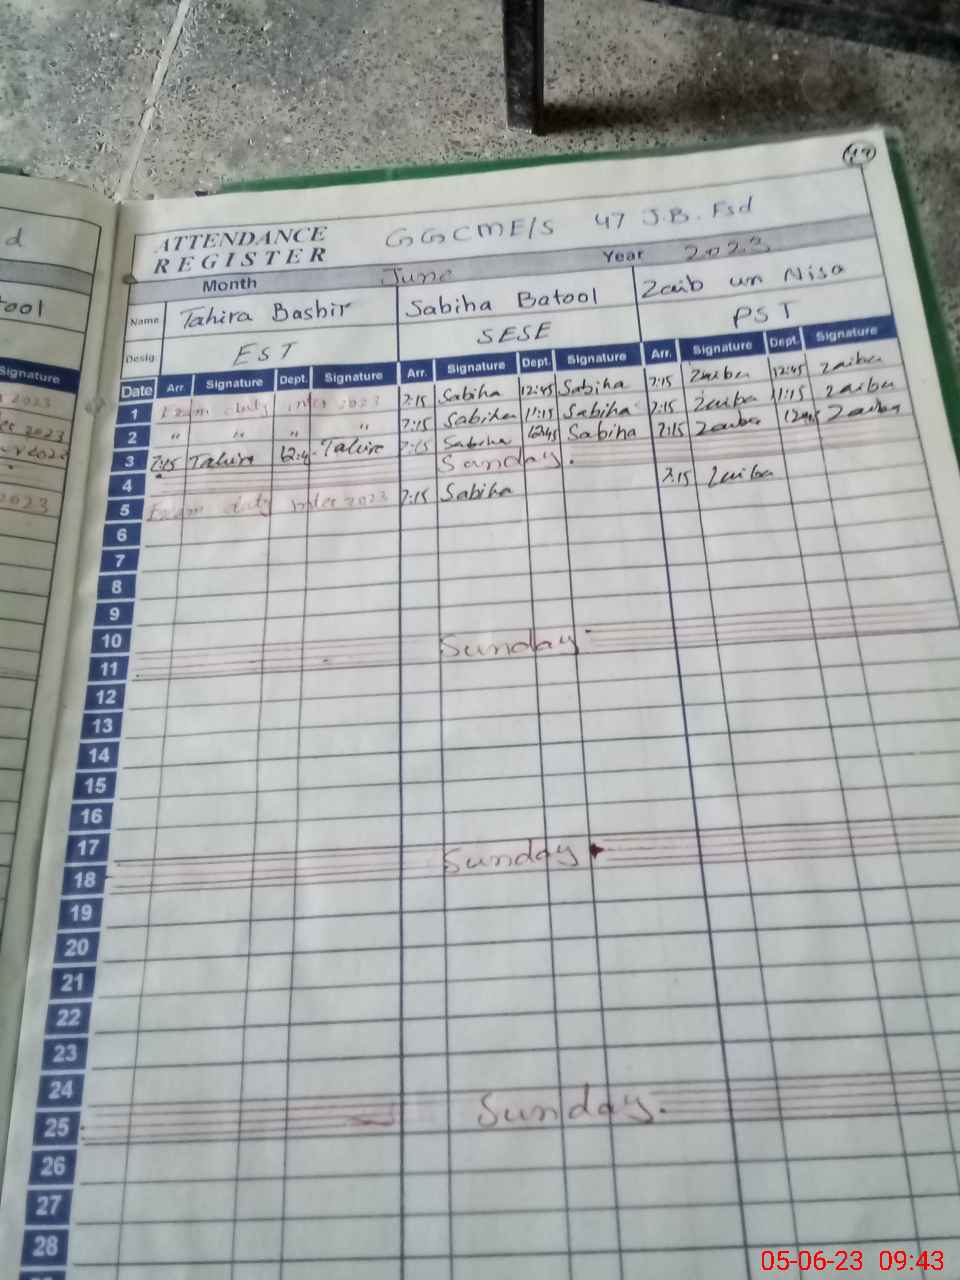 47
ATTENDANCE REGISTER GGCME/S 47 J.B. Fsd
Month June Year 2023
Name Tahira Bashir Sabiha Batool Zaib un Nisa
Desig. EST SESE PST
Date Arr. Signature Dept. Signature Arr. Signature Dept. Signature Arr. Signature Dept. Signature
1 Exam duty inter 2023 7:15 Sabiha 12:45 Sabiha 7:15 Zaiba 12:45 Zaiba
2 " " " " 7:15 Sabiha 11:15 Sabiha 7:15 Zaiba 11:15 Zaiba
3 7:15 Tahira 12:4 Tahira 7:15 Sabiha 12:45 Sabiha 7:15 Zaiba 12:45 Zaiba
4 Sunday.
5 Exam duty inter 2023 7:15 Sabiha 7:15 Zaiba
6
7
8
9
10
11 Sunday
12
13
14
15
16
17
18 Sunday
19
20
21
22
23
24
25 Sunday.
26
27
28
d
tool
Signature
2023
2023
2023
2023
05-06-23 09:43